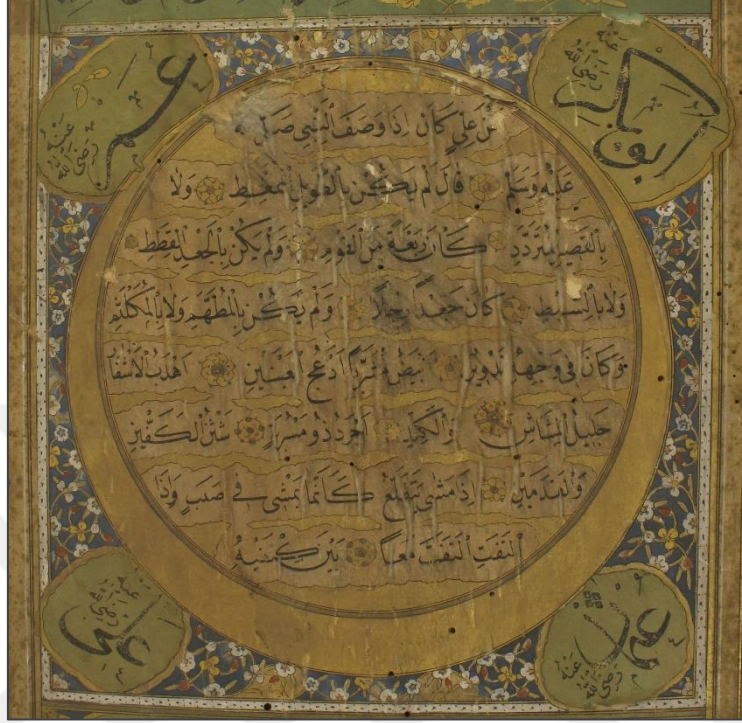 ابو بكر رضي الله عنه
عمر رضي الله عنه
عن علي كان اذا وصف النبي صلى
عليه وسلم قال لم يكن بالطويل الممغط ولا
بالقصير المتردد كان ربعة من القوم ولم يكن بالجعد القطط
ولا بالسبط كان جعدا رجلا ولم يكن بالمطهم ولا بالمكلثم
وكان في وجهه تدوير ابيض مشرب ادعج العينين اهدب الاشفار
جليل المشاش والكتد اجرد ذو مسربة شثن الكفين
والقدمين اذا مشى يتقلع كانما يمشي في صبب واذا
التفت التفت معا بين كتفيه
عثمان رضي الله عنه
علي رضي الله عنه